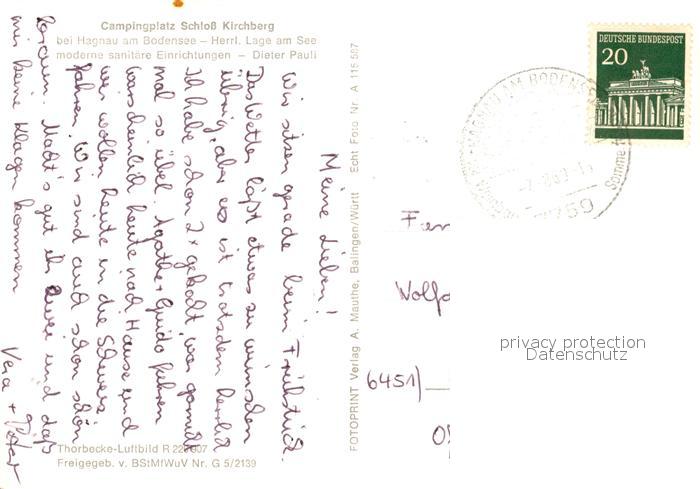 Campingplatz Schloß Kirchberg
bei Hagnau am Bodensee – Herrl. Lage am See
moderne sanitäre Einrichtungen – Dieter Pauli
Meine Lieben!
Wir sitzen gerade beim Frühstück.
Das Wetter läßt etwas zu wünschen
übrig, aber es ist trotzdem herrlich
Ich habe schon 2x gebadet, war garnicht
mal so übel. Agathe + Guido fahren
warscheinlich heute nach Hause und
wir wollen heute in die Schweiz
fahren. Wir sind auch schon schön
braun. Macht's gut ihr zwei und daß
mir keine Klagen kommen
Vera +
Thorbecke-Luftbild R
Freigegeb. v. BStMfWuV Nr. G 5/2139
FOTOPRINT Verlag A. Mauthe, Balingen/Württ Echt Foto Nr. A 115 587
DEUTSCHE BUNDESPOST
20
HAGNAU AM BODENSEE
7759
Fam
Wolfg
6451)
privacy protection
Datenschutz